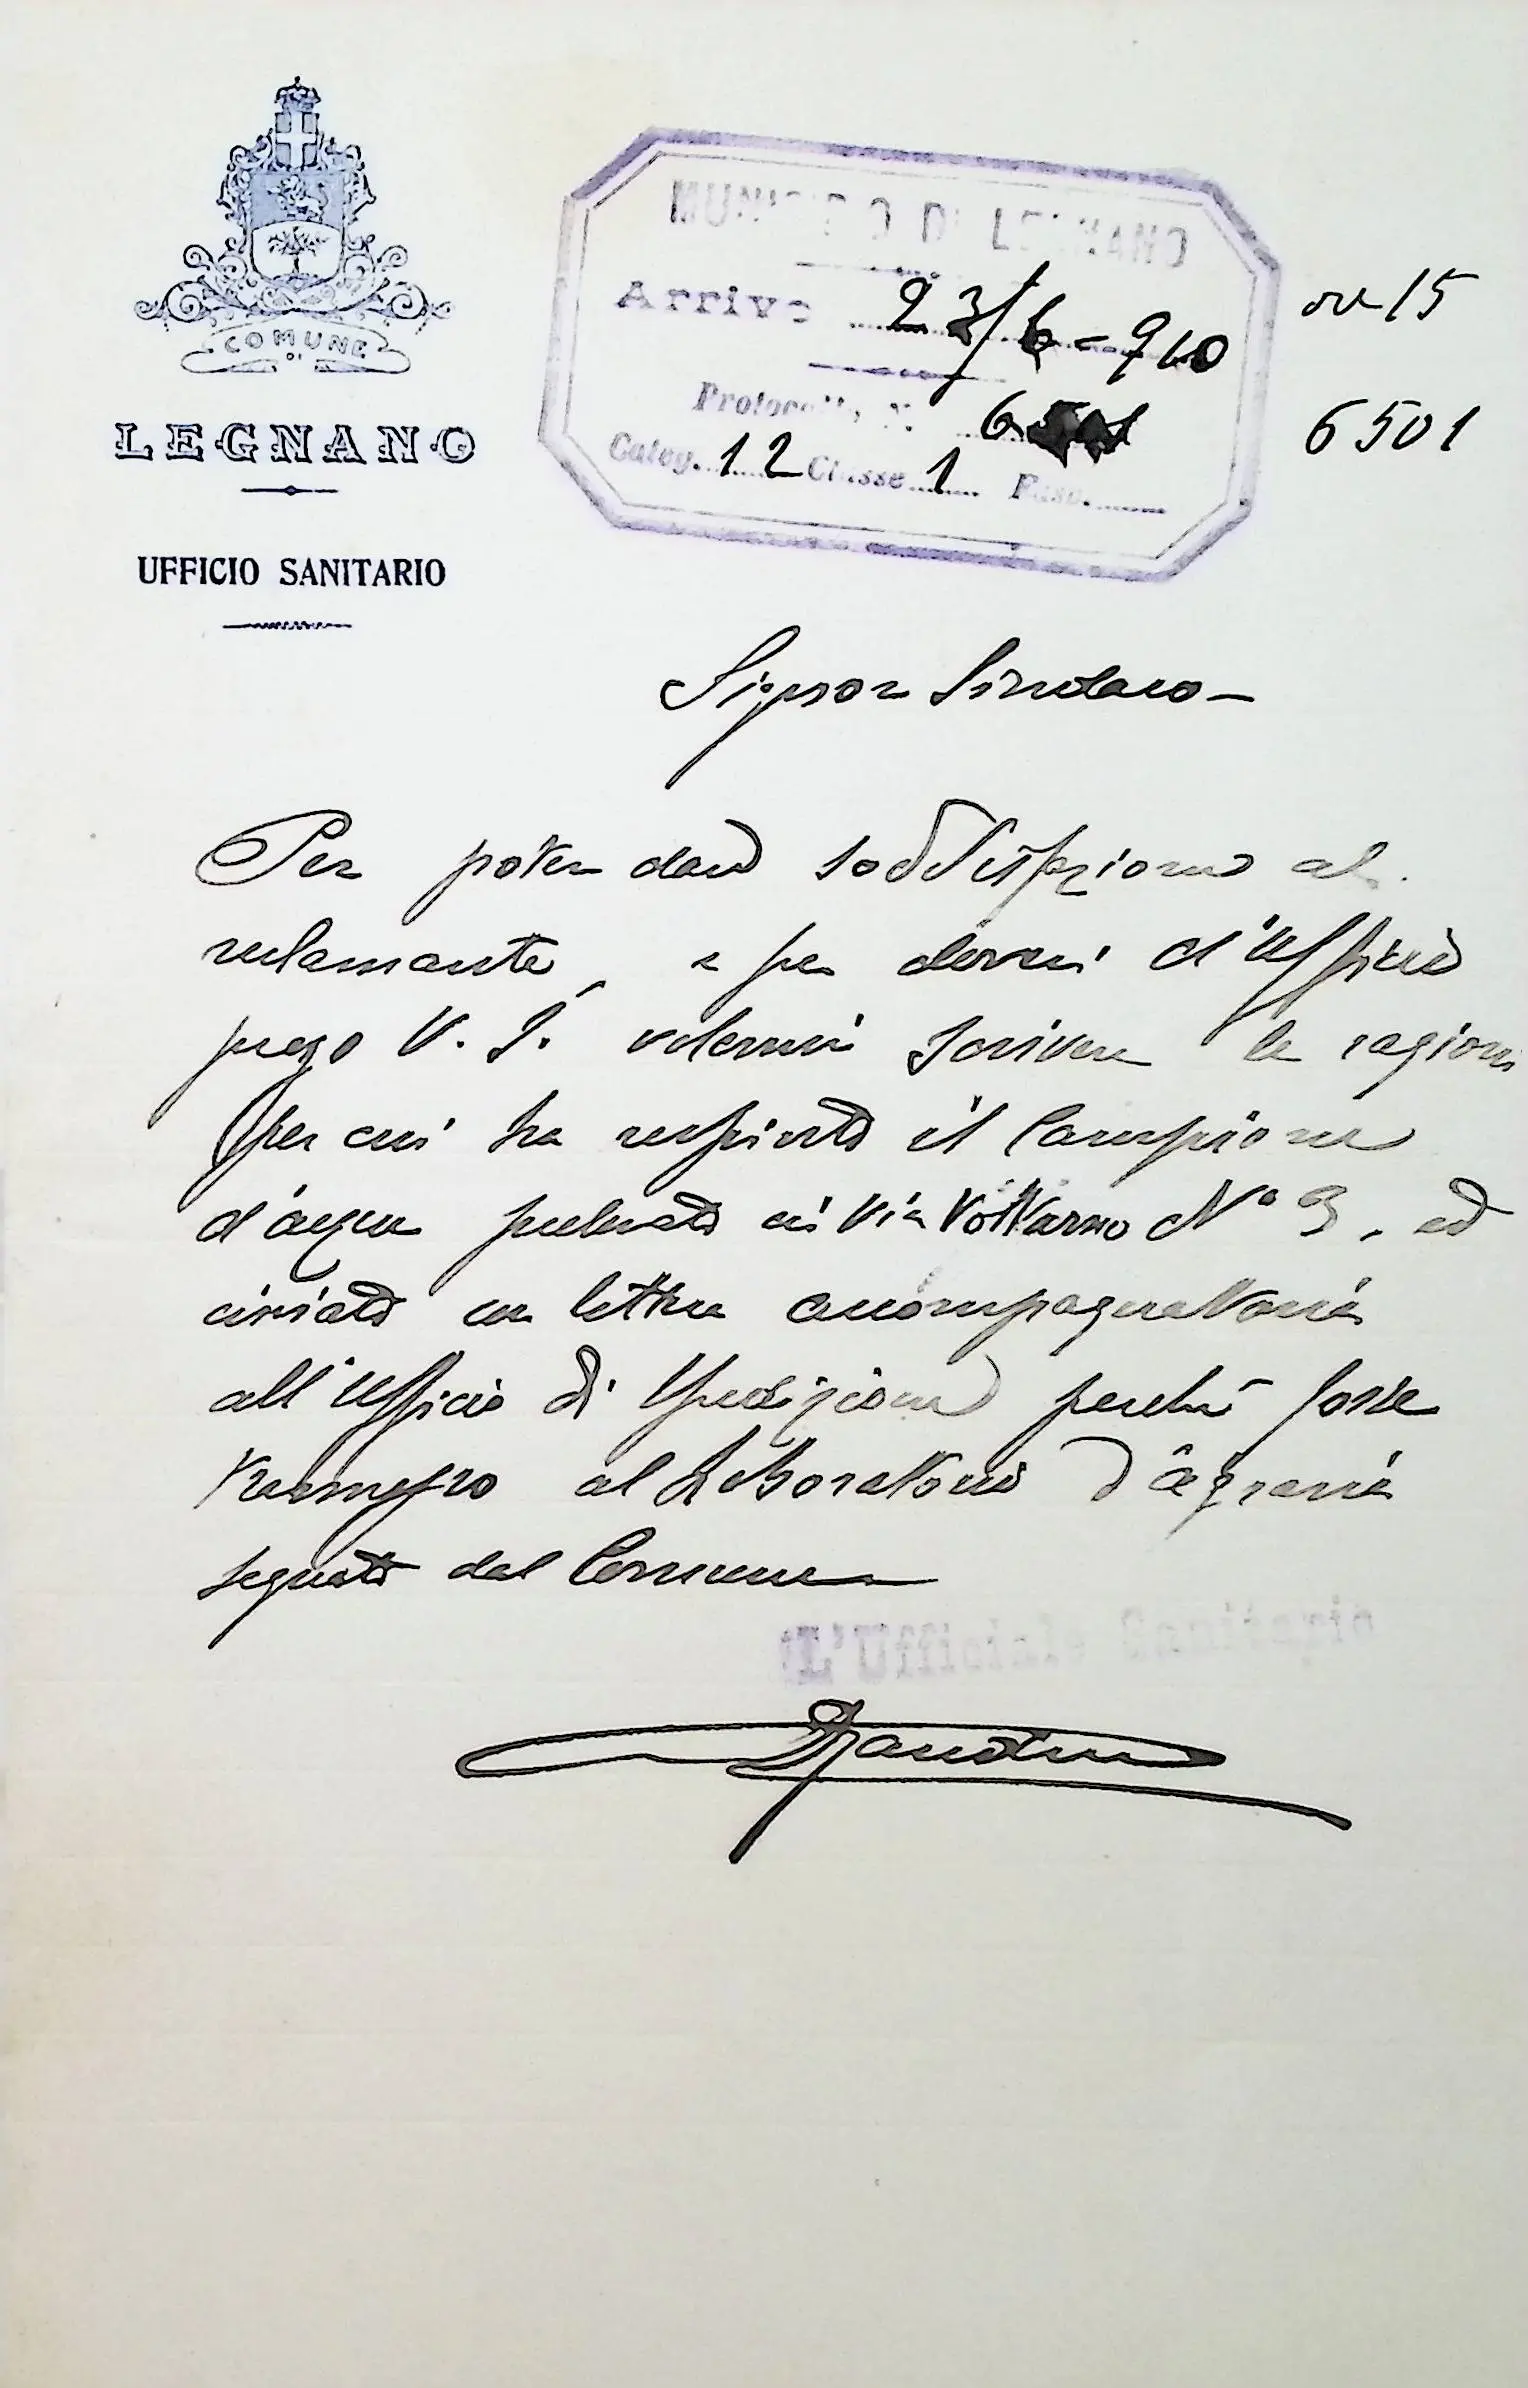 COMUNE
DI
LEGNANO
UFFICIO SANITARIO
MUNICIPIO DI LEGNANO
Arrivo 23/6-910
ore 15
Protocollo, N.
6501
Categ. 12 Classe 1 Fasc.
Signor Sindaco -
Per poter dare soddisfazione al
reclamante, e per doveri d'Ufficio
prego V. S. volermi scrivere le ragioni
per cui ha respinto il Campione
d'acqua prelevato in Via Volturno N° 3, ed
inviato con lettera accompagnatoria
all'Ufficio di Spedizione perché fosse
trasmesso al Laboratorio d'Agraria
segnato dal Comune
L'Ufficiale Sanitario